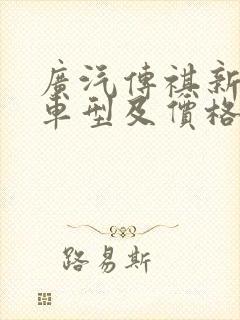 廣汽傳祺新
車型及價格
路易斯